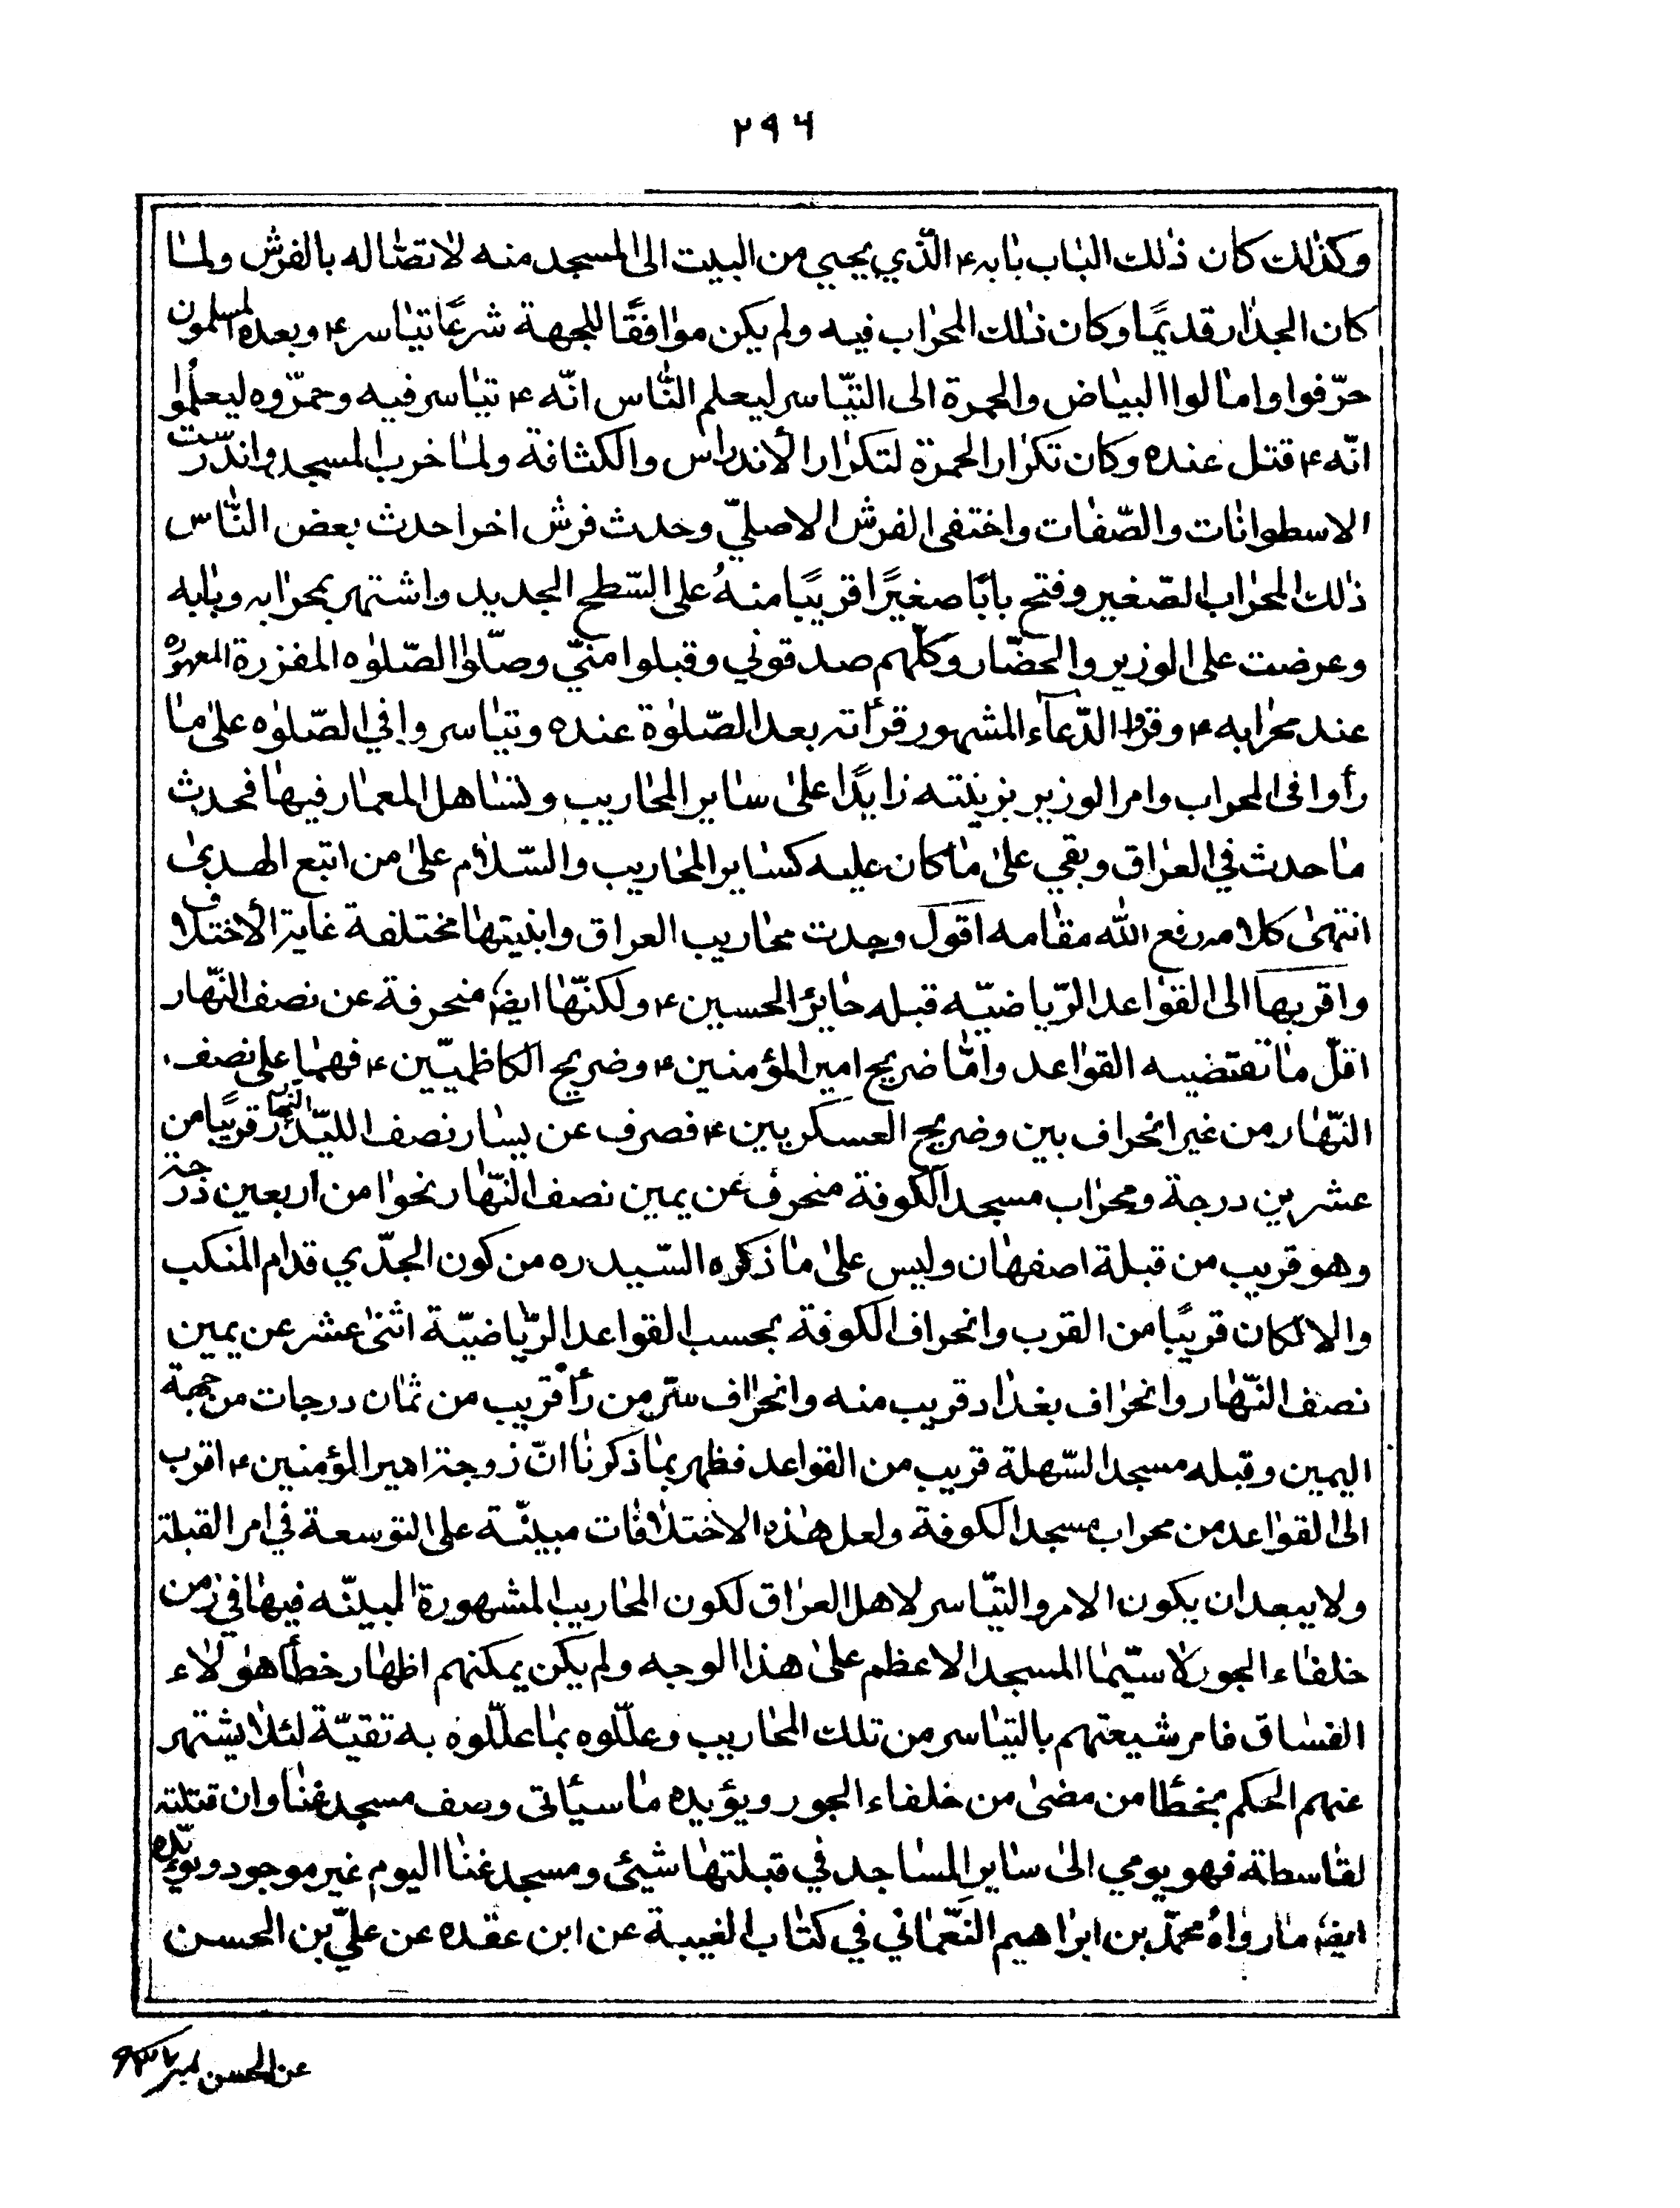 ٢٩٦
وكذٰلك كان ذٰلك الباب بابه ٤ الّذي يجيي من البيت الى المسجد منه لاتصٰاله بالفرش ولمٰا
كان الجدٰار قديمًا وكان ذٰلك المحرٰاب فيه ولم يكن موٰافقًا للجهة شرعًا تيٰاسر ٤ وبعده المسلمون
حرّفوا وامٰالوا البيٰاض والحمرة الى التيّاسر ليعلم النّاس انّه ٤ تيٰاسر فيه وحمرّوه ليعلموا
انّه ٤ قتل عنده وكان تكرٰار الحمرة لتكرٰار الأندراس والكثافة ولمٰا خرب المسجد واندرست
الاسطوانٰات والصّفٰات واختفى الفرش الاصليّ وحدث فرش اخر احدث بعض النّاس
ذٰلك المحرٰاب الصّغير وفتح بابًا صغيرًا قريبًا منهُ على السّطح الجديد واشتهر بمحرٰابه وبٰابه
وعرضت على الوزير والحضّار وكلّهم صدقوني وقبلوا منيّ وصلّوا الصّلوٰه المفررة المعهوده
عند محرٰابه ٤ وقرؤا الدّعآء المشهور قرأته بعد الصّلوٰة عنده وتيٰاسروا في الصّلوٰه علىٰ مٰا
رأوا في المحراب وامر الوزير بزينته زايدًا علىٰ سٰاير المحٰاريب وتسٰاهل المعمٰار فيهٰا فحدث
مٰا حدث في العرٰاق وبقي علىٰ مٰا كان عليه كسٰاير المحٰاريب والسّلام علىٰ من اتبع الهدىٰ
انتهىٰ كلامه رفع الله مقٰامه اقول وجدت محٰاريب العراق وابنيتهٰا مختلفة غاية الأختلاف
واقربها الى القوٰاعد الرّياضيّه قبله حٰاير الحسين ٤ ولكنّهٰا ايضٰا منحرفة عن نصف النّهٰار
اقلّ مٰا تقتضيه القوٰاعد وامّٰا ضريح امير المؤمنين ٤ وضريح الكاظميّين ٤ فهمٰا على نصف
النّهٰار من غير انحراف بين وضريح العسكريين ٤ فصرف عن يسٰار نصف الليّل النهٰار قريبًا من
عشرين درجة ومحرٰاب مسجد الكوفة منحرف عن يمين نصف النّهٰار نحوًا من اربعين درجة
وهو قريب من قبلة اصفهٰان وليس علىٰ مٰا ذكره السّيد ره من كون الجدّي قدام المنكب
والا لكان قريبًا من القرب وانحراف الكوفة بحسب القواعد الريّاضيّة اثنىٰ عشر عن يمين
نصف النّهٰار وانحرٰاف بغدٰاد قريب منه وانحرٰاف سرّ من رأ قريب من ثمٰان درجات من جهة
اليمين وقبله مسجد السّهلة قريب من القواعد فظهر بمٰا ذكرنٰا انّ زوجة امير المؤمنين ٤ اقرب
الى القوٰاعد من محراب مسجد الكوفة ولعل هٰذه الاختلافٰات مبينّة على التوسعة في امر القبلة
ولا يبعد ان يكون الامر والتيّاسر لاهل العرٰاق لكون المحٰاريب المشهورة المبينّه فيهٰا في زمن
خلفٰاء الجور لاسيّمٰا المسجد الاعظم علىٰ هذا الوجه ولم يكن يمكنهم اظهٰار خطأ هؤلاء
الفسٰاق فامر شيعتهم بالتيٰاسر من تلك المحٰاريب وعلّلوه بمٰا علّلوه به تقيّة لئلا يشتهر
عنهم الحكم بخطٰأ من مضىٰ من خلفاء الجور ويؤيده مٰا سيٰأتى وصف مسجد غنٰا وان قبلته
لقٰاسطة فهو يومي الىٰ سٰاير المسٰاجد في قبلتهٰا شيئ ومسجد غنٰا اليوم غير موجود ويؤيّده
ايضٰا مٰا روٰاهُ محمّد بن ابرٰاهيم النّعمٰاني في كتٰاب الغيبة عن ابن عقده عن عليّ بن الحسن
عن الحسن